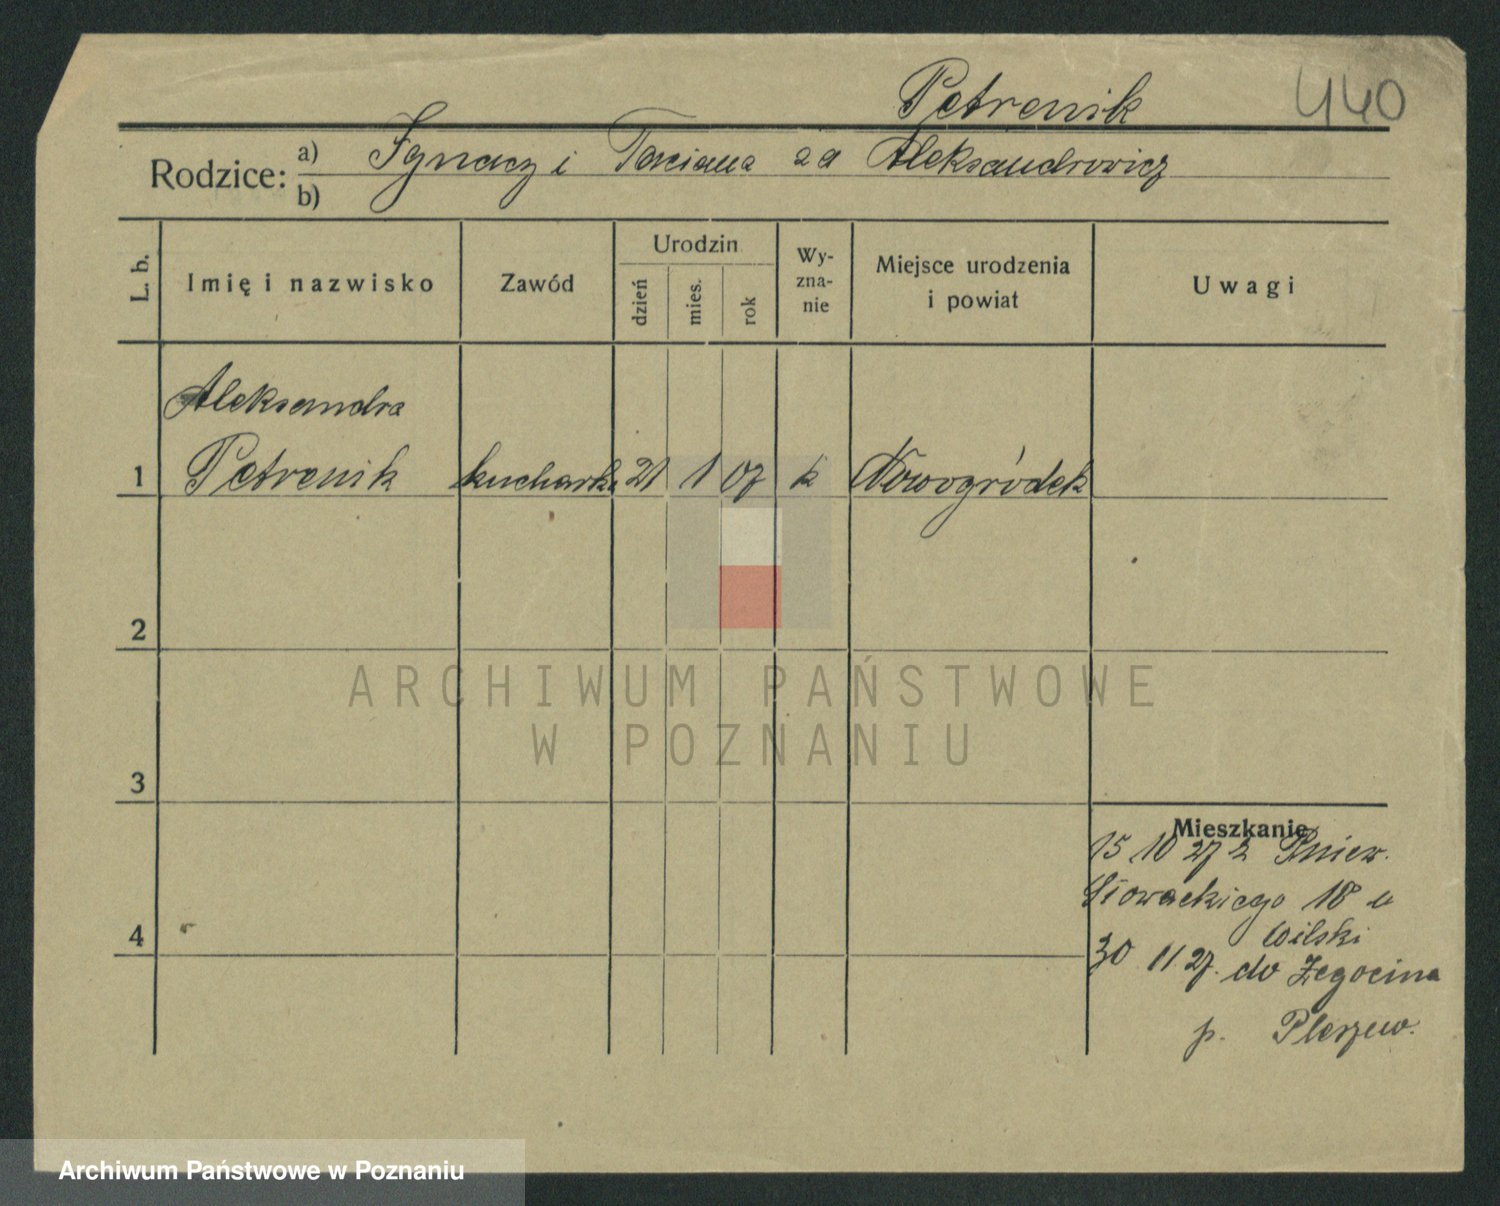 Petrenik 440
Rodzice: a) Ignacz i Taciana za Aleksandrowicz
b)
L. b. Imię i nazwisko Zawód Urodzin dzień mies. rok Wyznanie Miejsce urodzenia i powiat Uwagi
Aleksandra
1 Petrenik kucharka 21 1 07 k Nowogródek
2
3
4
Mieszkanie
15 10 27 z Pniew.
Słowackiego 18 u
Wilski
30 11 27. do Żegocina
p. Pleszew.
ARCHIWUM PAŃSTWOWE
W POZNANIU
Archiwum Państwowe w Poznaniu